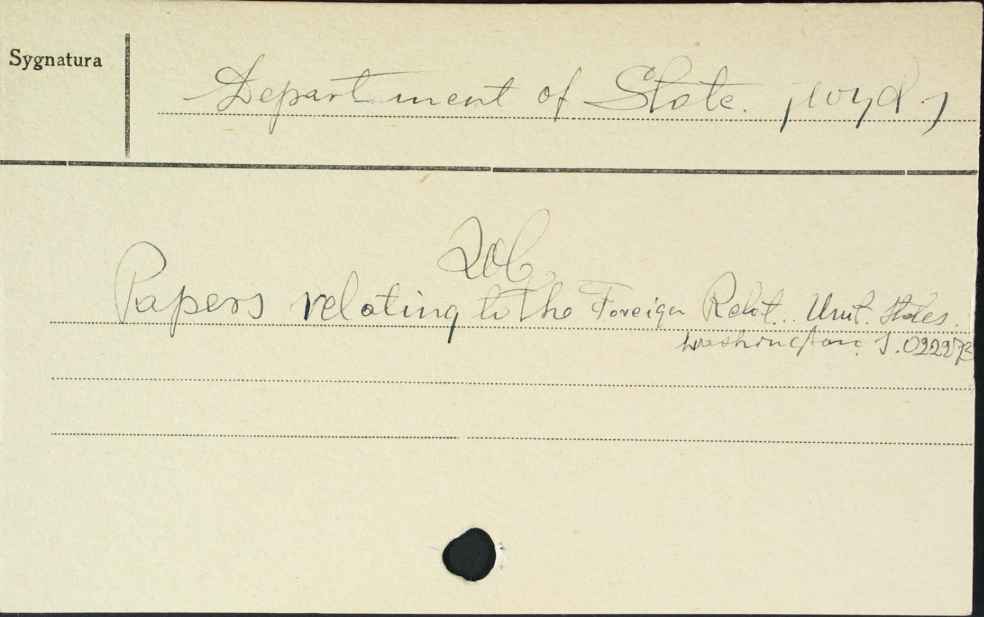 Sygnatura
Department of State. (wyd.)
Zob.
Papers relating to the Foreign Relat. Unit. States.
Washington. J. 022273